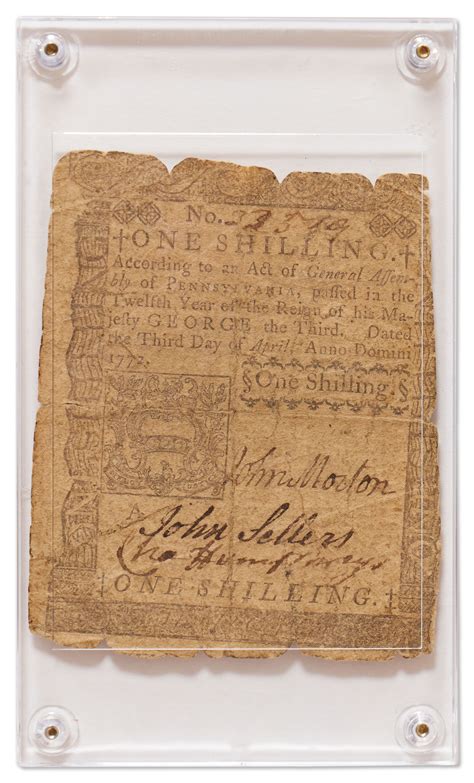 No. 33519
†ONE SHILLING.†
According to an Act of General Assem-
bly of PENNSYLVANIA, passed in the
Twelfth Year of the Reign of his Ma-
jesty GEORGE the Third. Dated
the Third Day of April, Anno Domini
1772.
§One Shilling.§
John Morton
A
John Sellers
Cha Humphreys
†ONE SHILLING.†